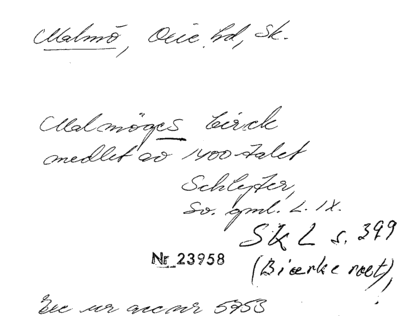 Malmö, Oxie hd, Sk.
Malmöges birck
medlet av 1400-talet
Schlyter,
Sv. gml. L. IX.
Sk L s. 399
(Biærke ræt),
Nr 23958
Exc ur acc nr 5953